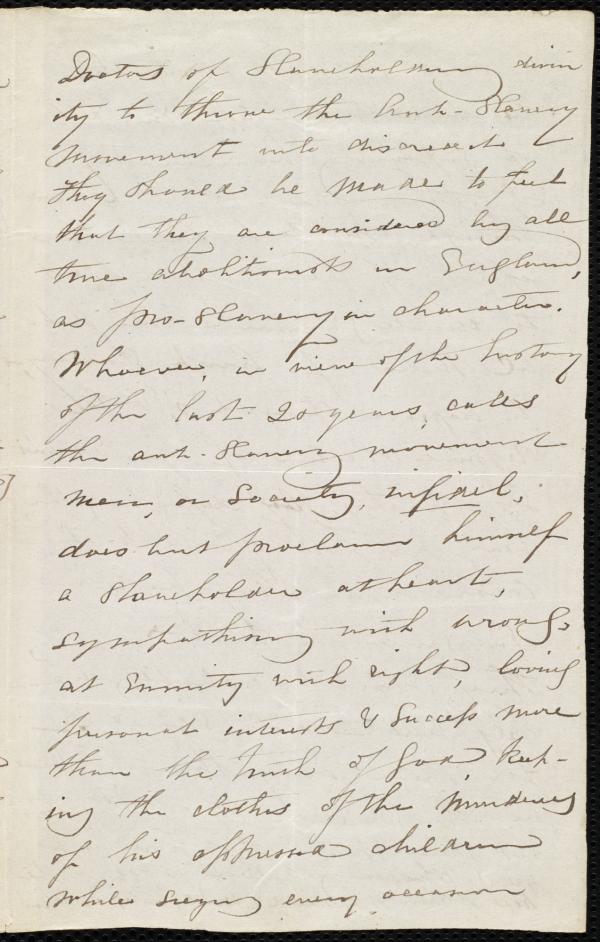 Doctors of Slaveholding divin
ity to throw the Anti-Slavery
movement into discredit
They should be made to feel
that they are considered by all
true abolitionists in England,
as pro-slavery in character.
Whoever, in view of the history
of the last 20 years, calls
the anti-Slavery movement
men, or Society, infidel,
does but proclaim himself
a Slaveholder at heart,
sympathising with wrong,
at enmity with right, loving
personal interests & Success more
than the truth of God keep-
ing the clothes of the murderers
of his oppressed children
while seizing every occasion